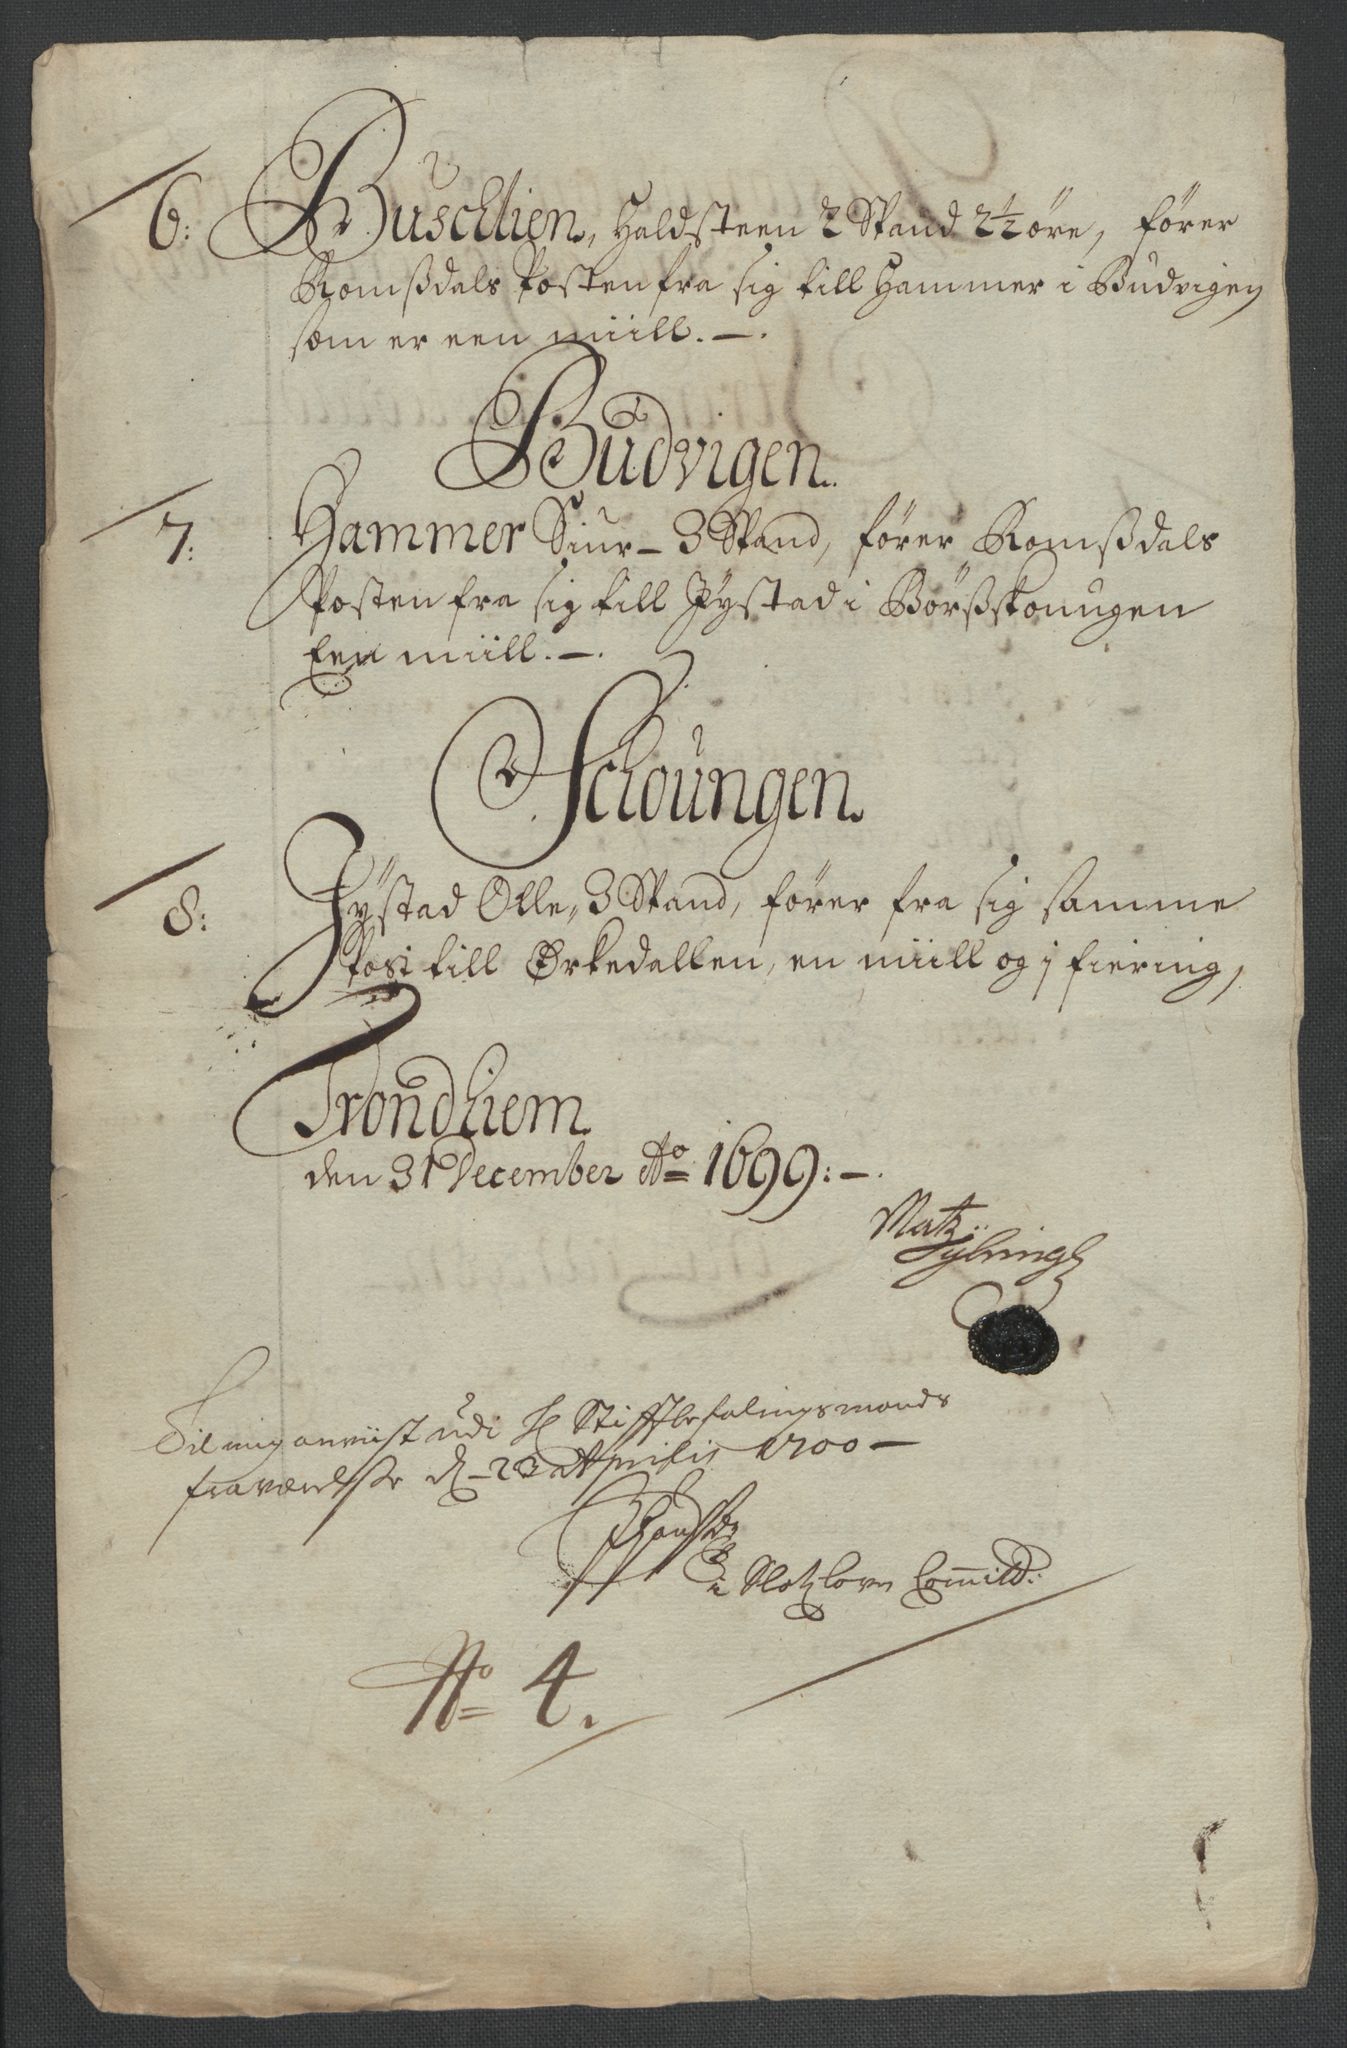 6: Busclien, Haldsteen 2 Spand 2½ öre, förer
Romßdals Posten fra sig till Hammer i Budvigen
som er een miill. —.
Budvigen.
7: Hammer Siur – 3 Spand, förer Romßdals
Posten fra sig till Jystad i Börßskougen
Een miill. —.
Schoungen.
8: Jystad Olle, 3 Spand, förer fra sig samme
Post till Ørkedallen, en miill og j fiering,
Trondhiem.
den 31 December Ao 1699: —.
Matz
Til mig anviist udi H Stifftbefalingsmands
fraværelsse d – 23 Aprilis 1700 —
i Slotzlovn Committ:
No 4.